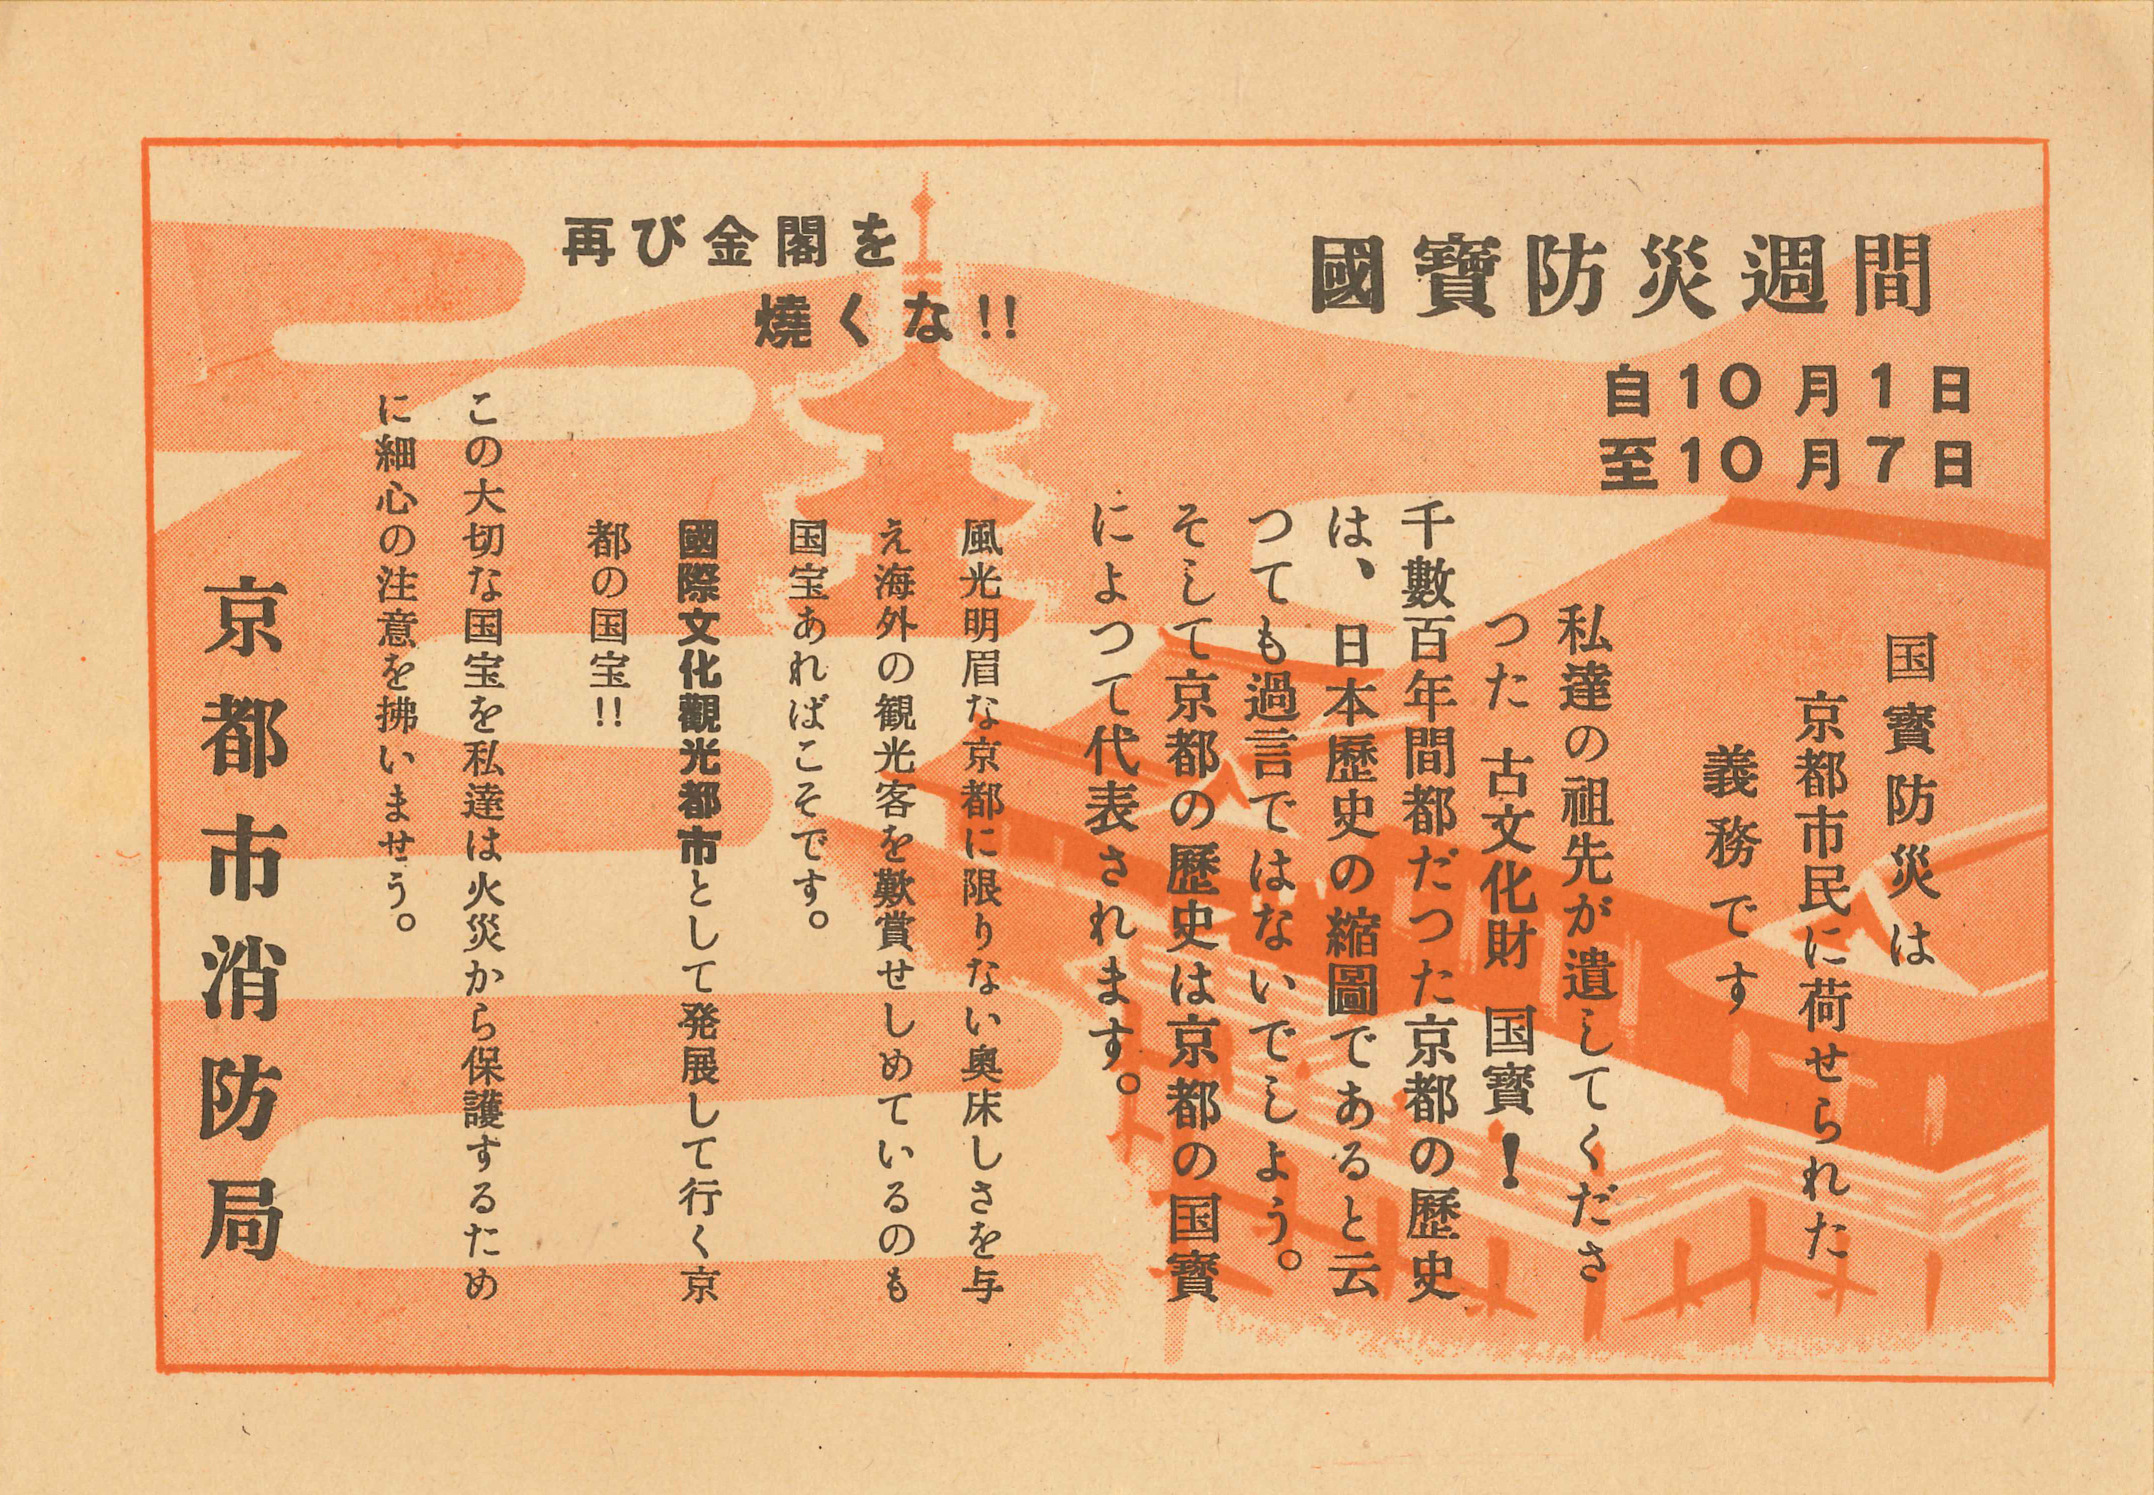 國寶防災週間
自10月1日
至10月7日
国寳防災は
京都市民に荷せられた
義務です
私達の祖先が遺してくださ
つた 古文化財 国寳！
千數百年間都だつた京都の歴史
は、日本歴史の縮圖であると云
つても過言ではないでしよう。
そして京都の歴史は京都の国寳
によつて代表されます。
再び金閣を
燒くな!!
風光明眉な京都に限りない奥床しさを与
え海外の観光客を歎賞せしめているのも
国宝あればこそです。
國際文化觀光都市として発展して行く京
都の国宝!!
この大切な国宝を私達は火災から保護するため
に細心の注意を拂いませう。
京都市消防局